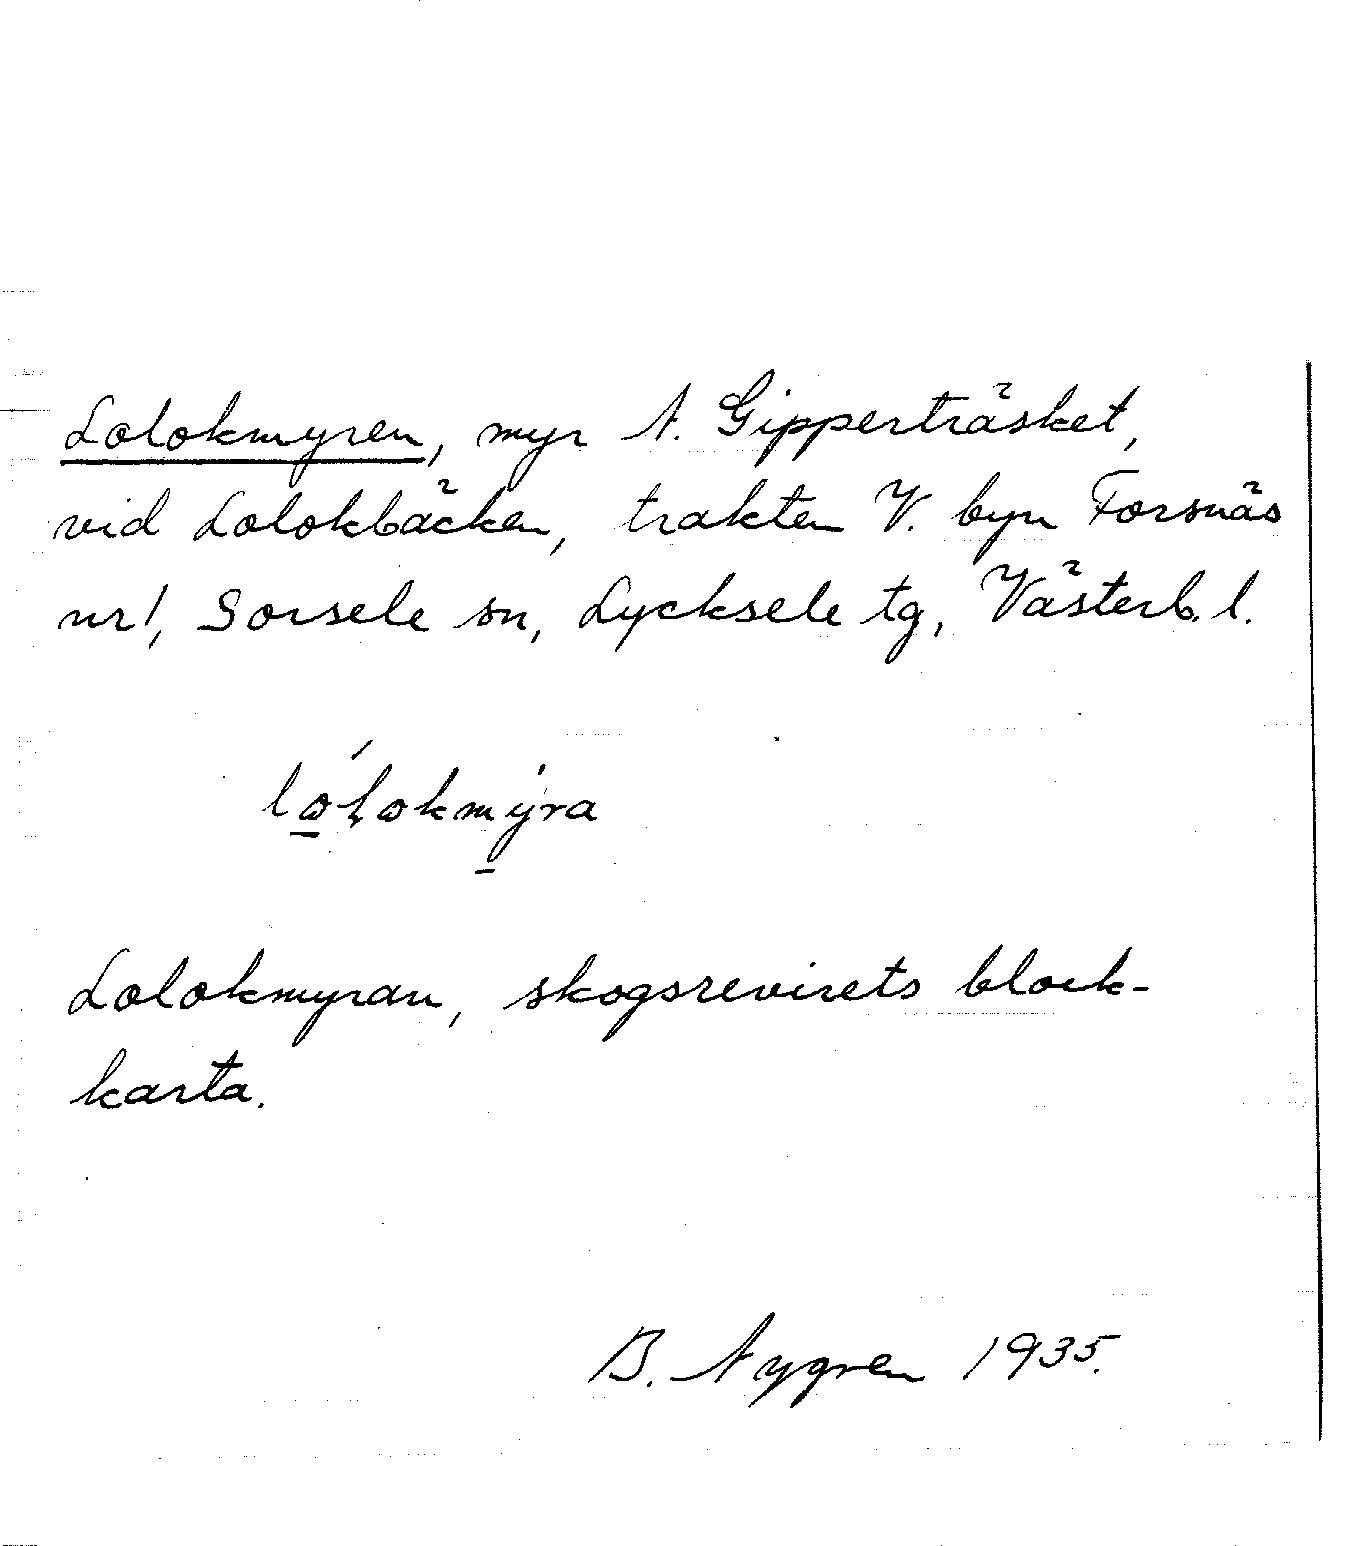 Lolokmyren, myr N. Gipperträsket,
vid Lolokbäcken, trakten V. byn Forsnäs
nr 1, Sorsele sn, Lycksele tg, Västerb. l.
lólokmýra
Lolokmyran, skogsrevirets block-
karta.
B. Nygren 1935.